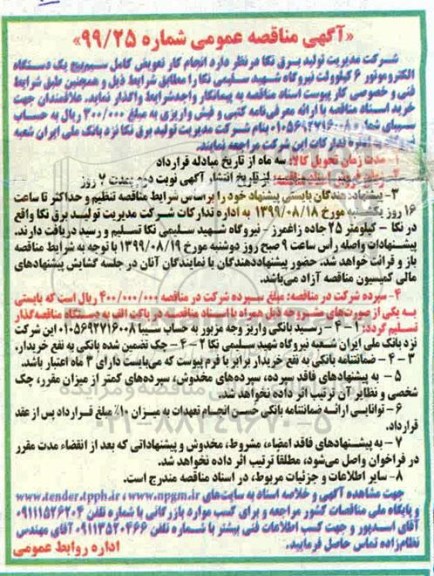 «آگهی مناقصه عمومی شماره ۹۹/۲۵»
شرکت مدیریت تولید برق نکا در نظر دارد انجام کار تعویض کامل سیم‌پیچ یک دستگاه
الکتروموتور ۶ کیلوولت نیروگاه شهید سلیمی نکا را مطابق شرایط ذیل و همچنین طبق شرایط
فنی و خصوصی کار پیوست اسناد مناقصه به پیمانکار واجدشرایط واگذار نماید. علاقمندان جهت
خرید اسناد مناقصه با ارائه معرفی‌نامه کتبی و فیش واریزی به مبلغ ۳۰۰/۰۰۰ ریال به حساب
سیبای شماره ۰۱۰۵۶۹۲۷۱۶۰۰۸ بنام شرکت مدیریت تولید برق نکا نزد بانک ملی ایران شعبه
به اداره تدارکات این شرکت مراجعه نمایند.
۱- مدت زمان تحویل کالا: سه ماه از تاریخ مبادله قرارداد
۲- زمان فروش اسناد مناقصه: از تاریخ انتشار آگهی نوبت دوم بمدت ۷ روز
۳- پیشنهاددهندگان بایستی پیشنهاد خود را براساس شرایط مناقصه تنظیم و حداکثر تا ساعت
۱۶ روز یکشنبه مورخ ۱۳۹۹/۰۸/۱۸ به اداره تدارکات شرکت مدیریت تولید برق نکا واقع
در نکا - کیلومتر ۲۵ جاده زاغمرز - نیروگاه شهید سلیمی نکا تسلیم و رسید دریافت دارند.
پیشنهادات واصله رأس ساعت ۹ صبح روز دوشنبه مورخ ۱۳۹۹/۰۸/۱۹ با توجه به شرایط مناقصه
باز و قرائت خواهد شد. حضور پیشنهاددهندگان یا نمایندگان آنان در جلسه گشایش پیشنهادهای
مالی کمیسیون مناقصه آزاد می‌باشد.
۴- سپرده شرکت در مناقصه: مبلغ سپرده شرکت در مناقصه ۴۰۰/۰۰۰/۰۰۰ ریال است که بایستی
به یکی از صورت‌های مشروحه ذیل همراه با اسناد مناقصه در پاکت الف به دستگاه مناقصه‌گذار
تسلیم گردد: ۱-۴- رسید بانکی واریز وجه مزبور به حساب سیبا ۰۱۰۵۶۹۲۷۱۶۰۰۸ این شرکت
نزد بانک ملی ایران شعبه نیروگاه شهید سلیمی نکا ۲-۴- چک تضمین شده بانکی به نفع خریدار.
۳-۴- ضمانتنامه بانکی به نفع خریدار برابر با فرم پیوست که می‌بایست دارای ۳ ماه اعتبار باشد.
۵- به پیشنهادهای فاقد سپرده، سپرده‌های مخدوش، سپرده‌های کمتر از میزان مقرر، چک
شخصی و نظایر آن ترتیب اثر داده نخواهد شد.
۶- توانایی ارائه ضمانتنامه بانکی حسن انجام تعهدات به میزان ۱۰٪ مبلغ قرارداد پس از عقد
قرارداد.
۷- به پیشنهادهای فاقد امضاء، مشروط، مخدوش و پیشنهاداتی که بعد از انقضاء مدت مقرر
در فراخوان واصل می‌شود، مطلقا ترتیب اثر داده نخواهد شد.
۸- سایر اطلاعات و جزئیات مربوط، در اسناد مناقصه مندرج است.
جهت مشاهده آگهی و خلاصه اسناد به سایت‌های www.npgm.ir ، www.tender.tpph.ir
و پایگاه ملی مناقصات کشور مراجعه و برای کسب موارد بازرگانی با شماره تلفن ۰۹۱۱۱۵۲۶۲۰۴
آقای اسدپور و جهت کسب اطلاعات فنی بیشتر با شماره تلفن ۰۹۱۱۳۵۲۰۴۶۶ آقای مهندس
نظام‌زاده تماس حاصل فرمایید.
اداره روابط عمومی
۰۲۱-۸۸۳۴۹۶۷۰-۵